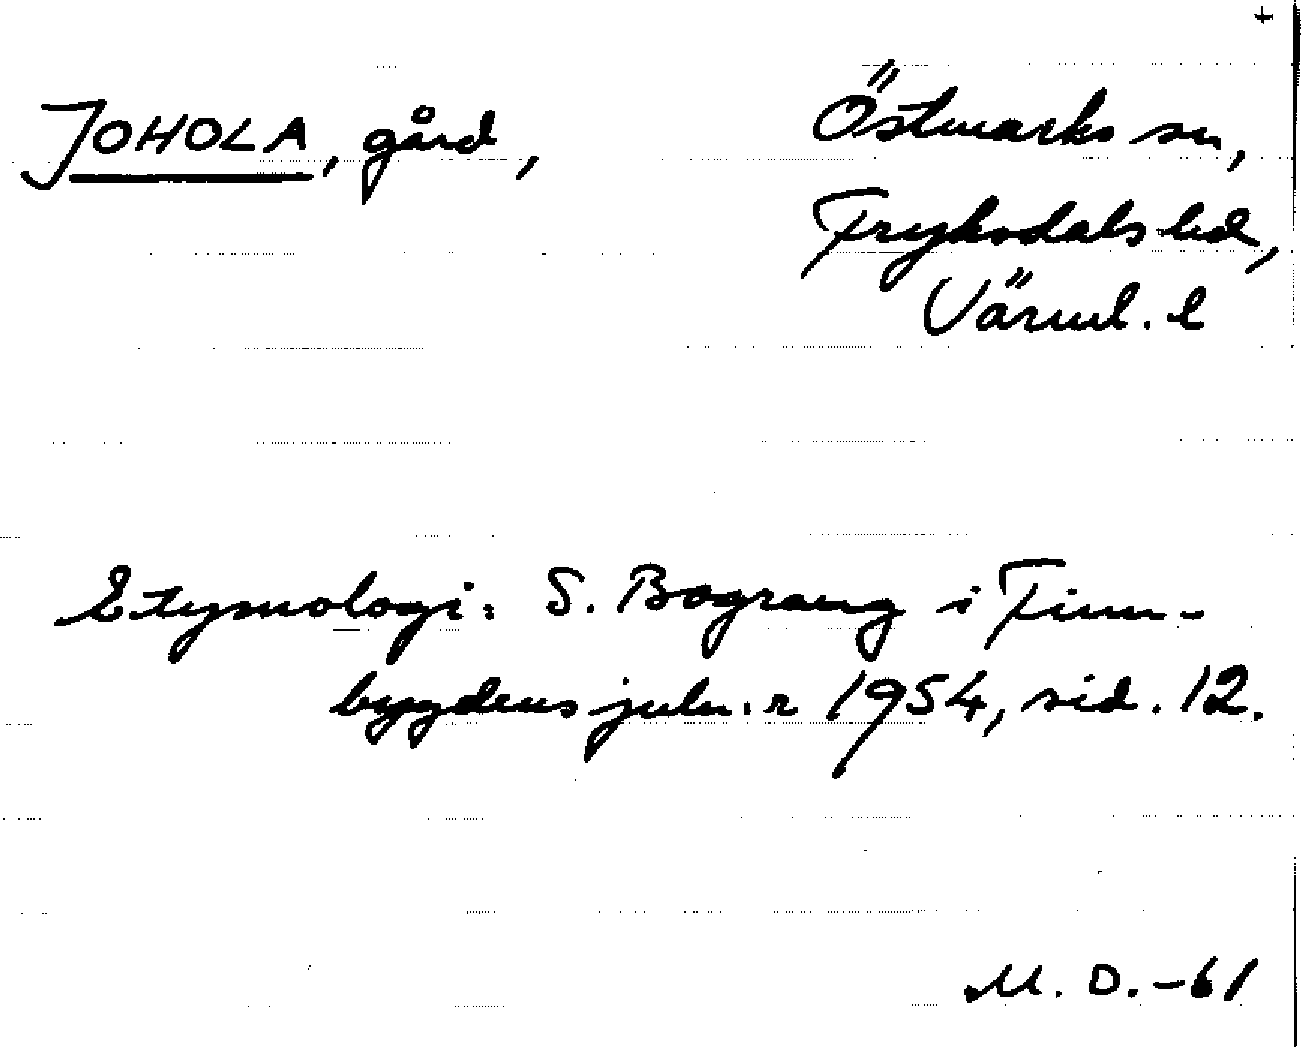 +
JOHOLA, gård,
Östmarks sn,
Fryksdals hd,
Värml. l
Etymologi: S. Bograng i Finn-
bygdens juln:r 1954, sid. 12.
M. D. -61